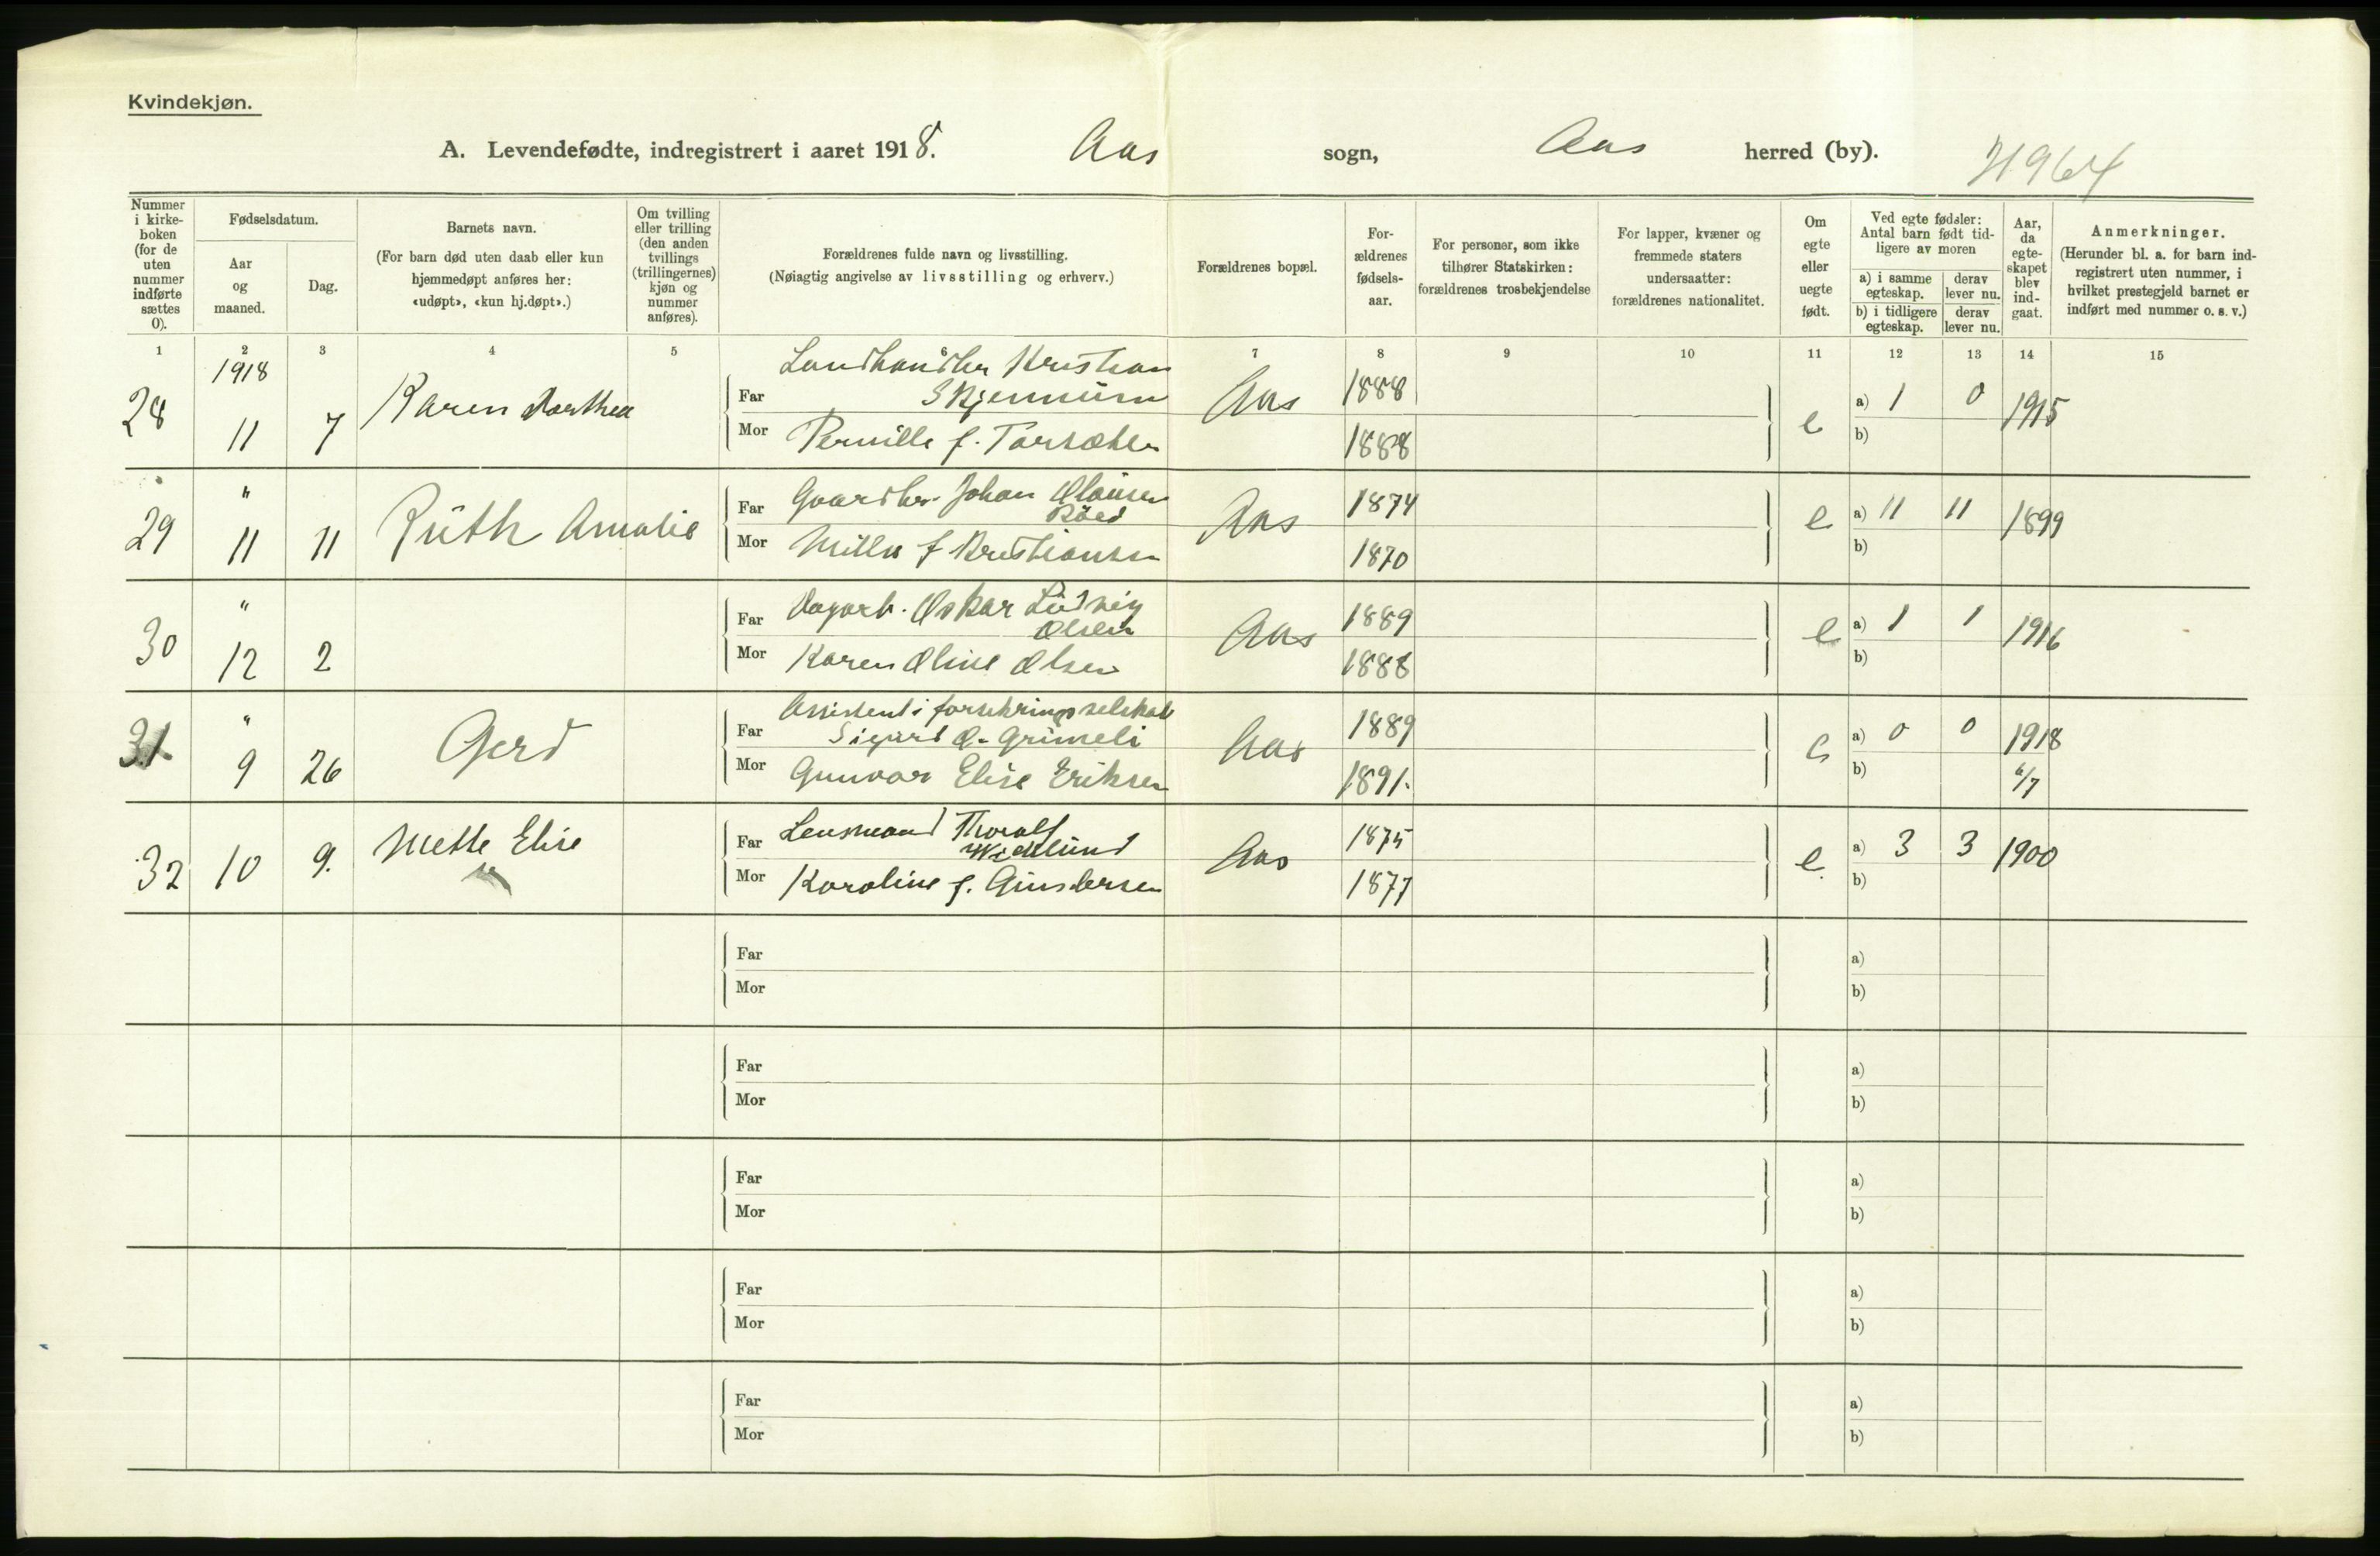 Kvindekjøn.
A. Levendefødte, indregistrert i aaret 1918. Aas sogn, Aas herred (by).
Nummer i kirkeboken (for de uten nummer indførte sættes 0).
Fødselsdatum.
Aar og maaned.
Dag.
Barnets navn.
(For barn død uten daab eller kun hjemmedøpt anføres her: «udøpt», «kun hj.døpt».)
Om tvilling eller trilling (den anden tvillings (trillingernes) kjøn og nummer anføres).
Forældrenes fulde navn og livsstilling.
(Nøiagtig angivelse av livsstilling og erhverv.)
Forældrenes bopæl.
Forældrenes fødselsaar.
For personer, som ikke tilhører Statskirken: forældrenes trosbekjendelse
For lapper, kvæner og fremmede staters undersaatter: forældrenes nationalitet.
Om egte eller uegte født.
Ved egte fødsler: Antal barn født tidligere av moren
a) i samme egteskap. derav lever nu.
b) i tidligere egteskap. derav lever nu.
Aar, da egteskapet blev indgaat.
Anmerkninger.
(Herunder bl. a. for barn indregistrert uten nummer, i hvilket prestegjeld barnet er indført med nummer o. s. v.)
1 2 3 4 5 6 7 8 9 10 11 12 13 14 15
1918
28 11 7 Karen Dorthea
Far Landhandler Kristian
Aas 1888 e a) 1 0 1915
Mor Pernille f. 1888 b)
"
29 11 11 Ruth Amalie
Far Gaardbr. Johan Olausen
Røed Aas 1874 e a) 11 11 1899
Mor Milla f Kristiansen 1870 b)
"
30 12 2
Far Dagarb. Oskar Ludvig
Olsen Aas 1889 e a) 1 1 1916
Mor Karen Oline Olsen 1888 b)
"
31 9 26 Gerd
Assistent i forsikringsselskab
Far Sigurd O. Grimeli Aas 1889 e a) 0 0 1918
Mor Gunvor Elise Eriksen 1891. b) 6/7
32 10 9. Mette Elise
Far Lensmand Thoralf
Aas 1875 e. a) 3 3 1900
Mor Karoline f. Gundersen 1877 b)
Far a)
Mor b)
Far a)
Mor b)
Far a)
Mor b)
Far a)
Mor b)
Far a)
Mor b)